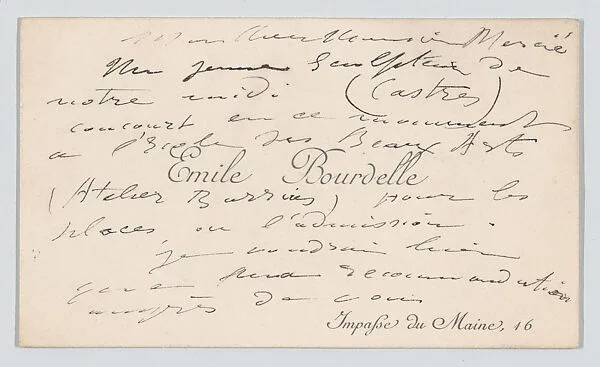 Mon Cher Monsieur Mercié
Un jeune Sculpteur de
notre midi (Castres)
concourt en ce moment
a l'Ecole des Beaux Arts
Emile Bourdelle
(Atelier Barrias) pour les
places ou l'admission.
je voudrais bien
que ma recommandation
auprès de vous
Impasse du Maine, 16